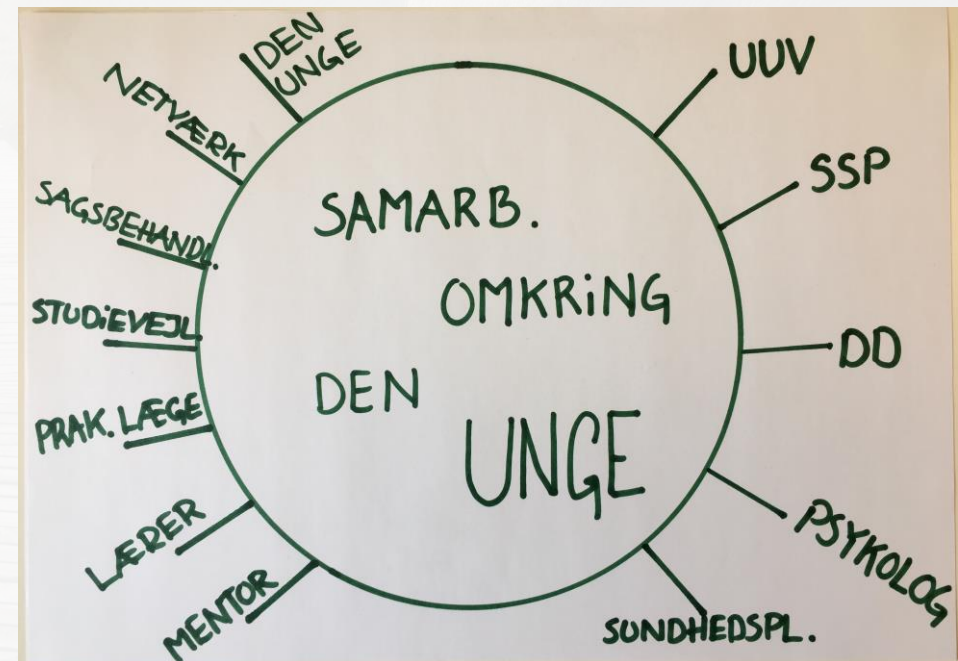 SAMARB.
OMKRiNG
DEN
UNGE
DEN
UNGE
NETVÆRK
SAGSBEHANDL.
STUDiEVEJL.
PRAK. LÆGE
LÆRER
MENTOR
UUV
SSP
DD
PSYKOLOG
SUNDHEDSPL.